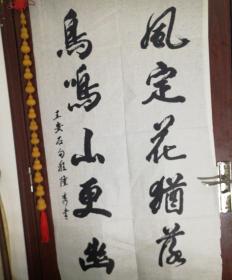 風定花猶落
鳥鳴山更幽
王安石句